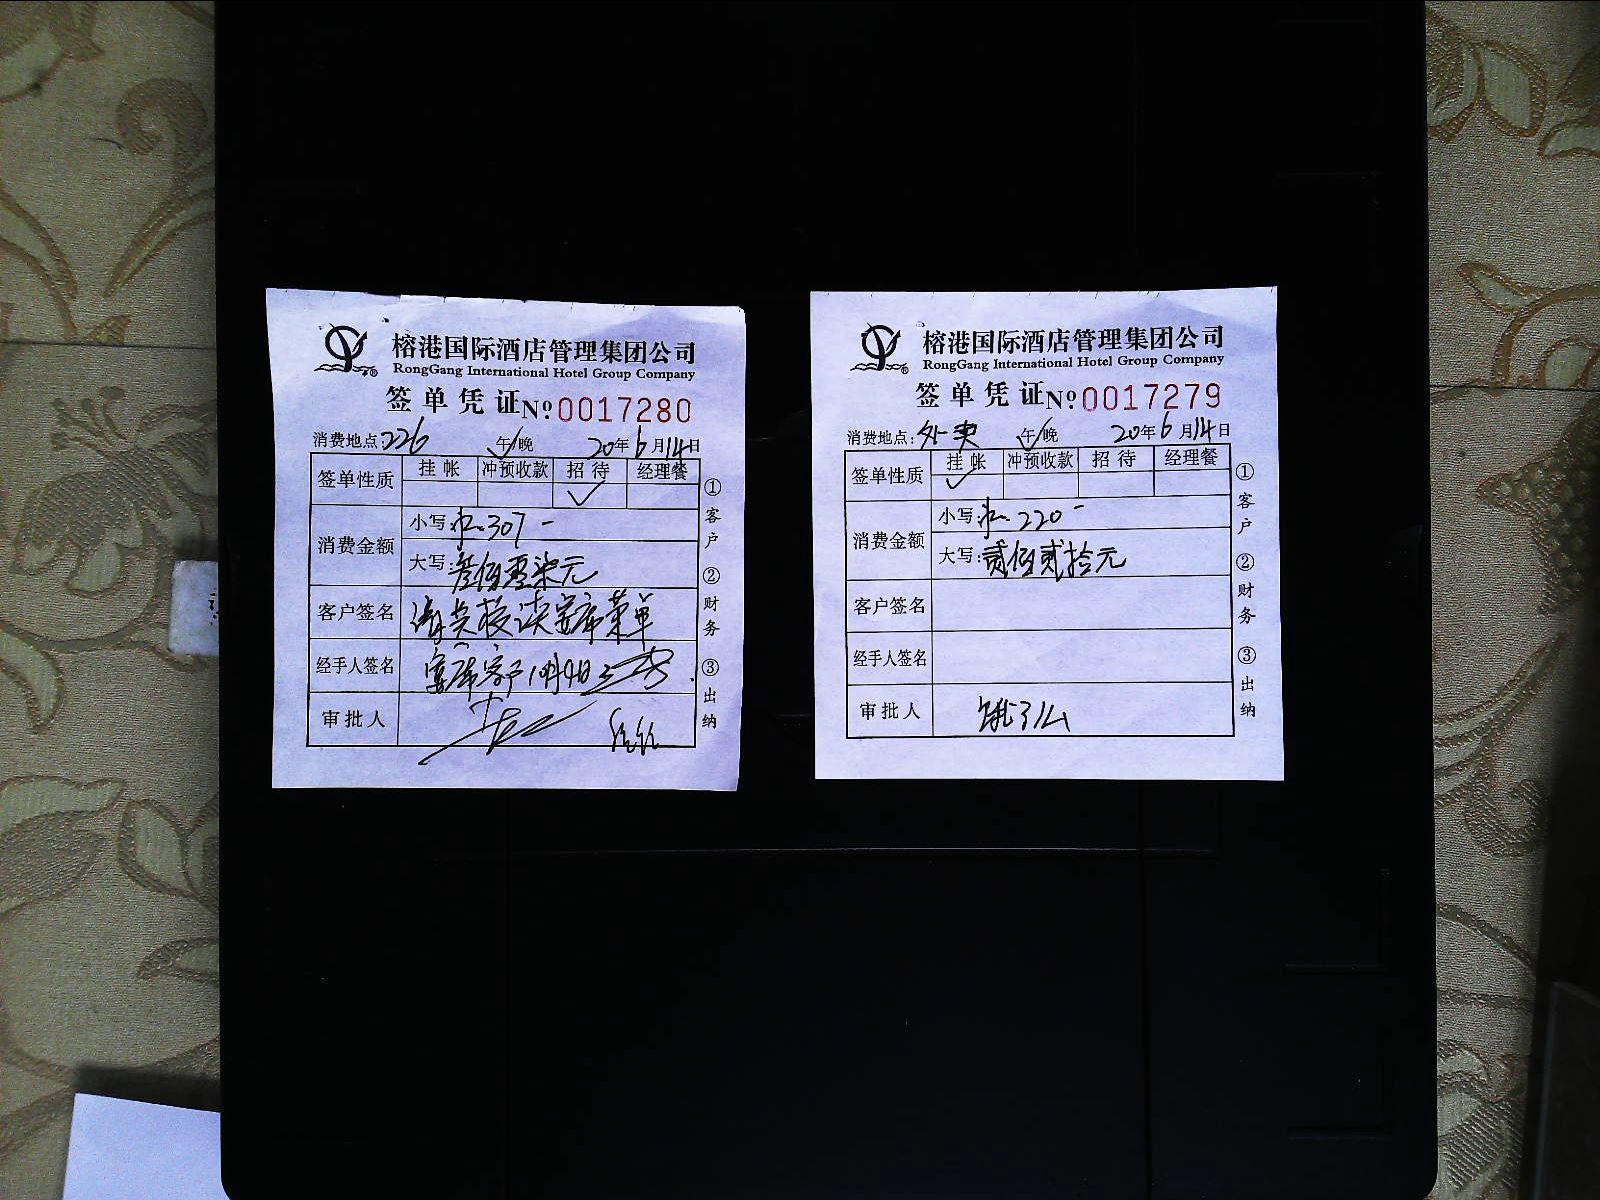 榕港国际酒店管理集团公司
RongGang International Hotel Group Company
签单凭证 No 0017280
消费地点:226 午/晚 20年6月14日
签单性质 挂帐 冲预收款 招待 经理餐
✓
消费金额
小写: 307 -
大写:叁佰零柒元
客户签名 谈宴席菜单
经手人签名 宴席客户10月4日
审批人
①客户 ②财务 ③出纳
榕港国际酒店管理集团公司
RongGang International Hotel Group Company
签单凭证 No 0017279
消费地点:外卖 午/晚 20年6月14日
签单性质 挂帐 冲预收款 招待 经理餐
✓
消费金额
小写: 220 -
大写:贰佰贰拾元
客户签名
经手人签名
审批人 饿了么
①客户 ②财务 ③出纳